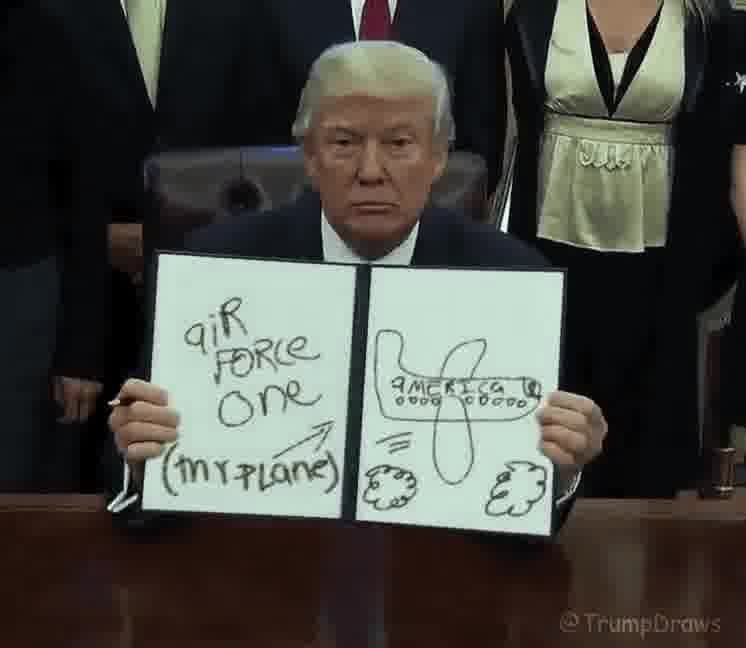 aiR
FORCe
One
(my PLane)
AMERICa
@TrumpDraws